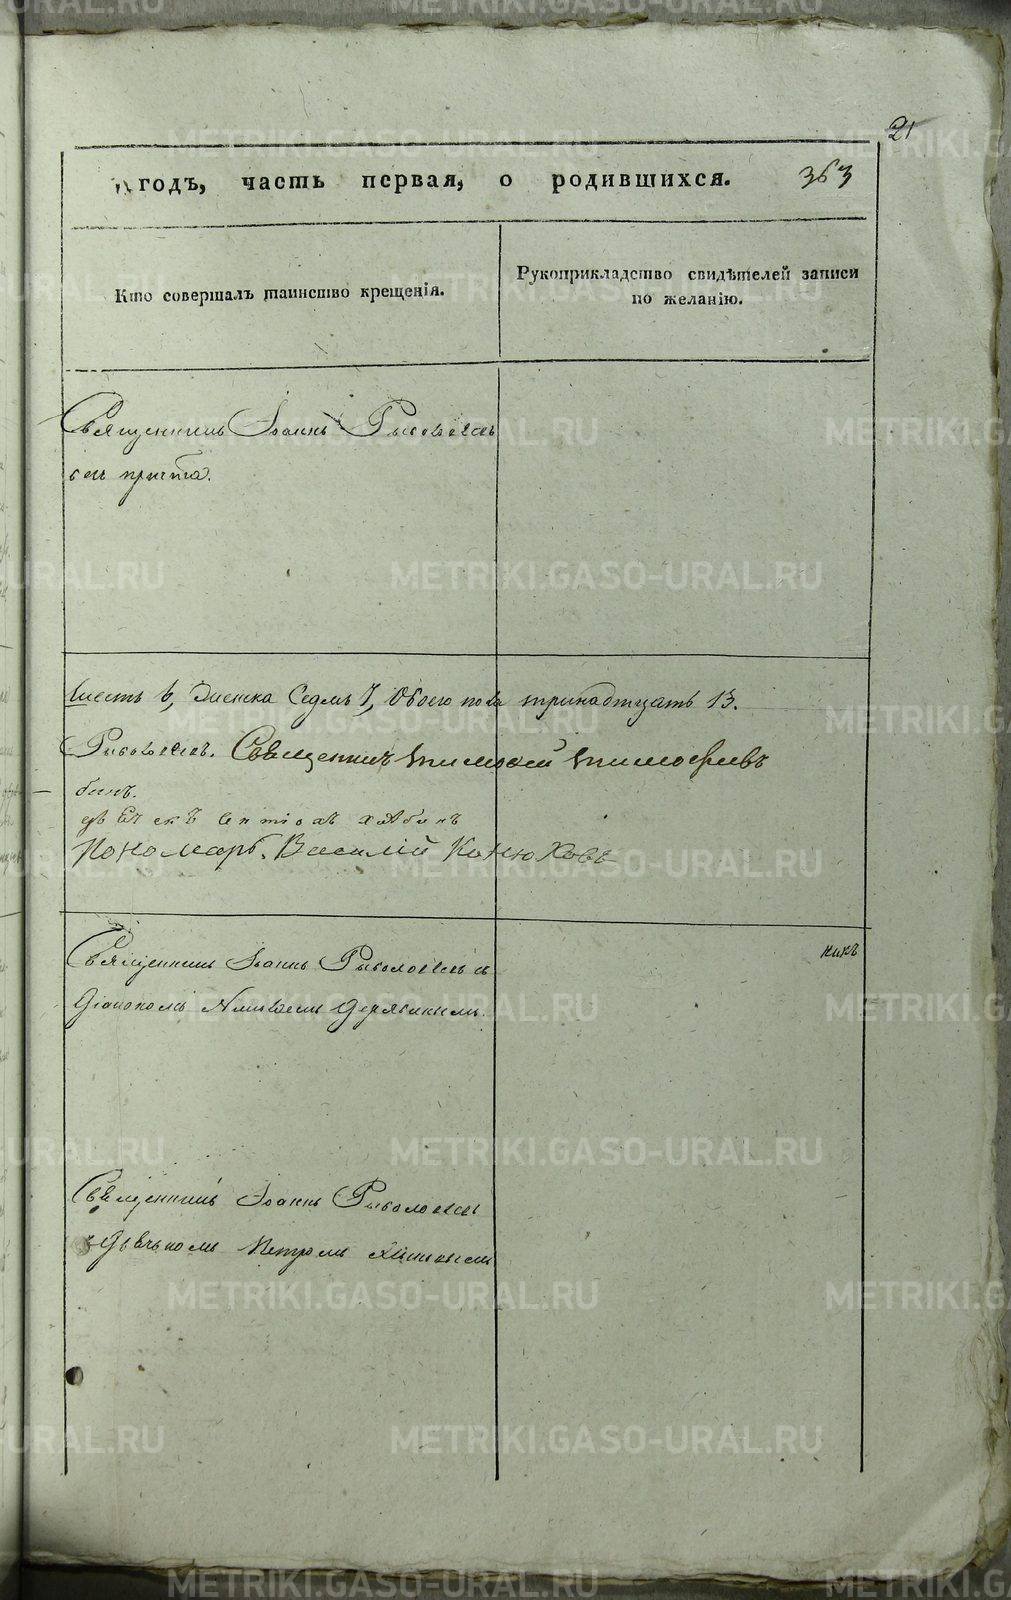 21
годъ, часть первая, о родившихся. 363
Кто совершалъ таинство крещенія.
Рукоприкладство свидѣтелей записи
по желанію.
Священникъ Іоаннъ Рыболовлевъ
безъ причта.
Шесть 6, Женска Седмь 7, Обоего пола тринадтцать 13.
Рыболовлев. Священникъ тимофей тимофеевъ
бинъ.
дьячекъ
Пономарь Василій Конюховъ
никъ
Священникъ Іоаннъ Рыболовлевъ съ
Діакономъ Деревкинымъ
Священникъ Іоаннъ Рыболовлев
Дьячькомъ Петромъ
METRIKI.GASO-URAL.RU